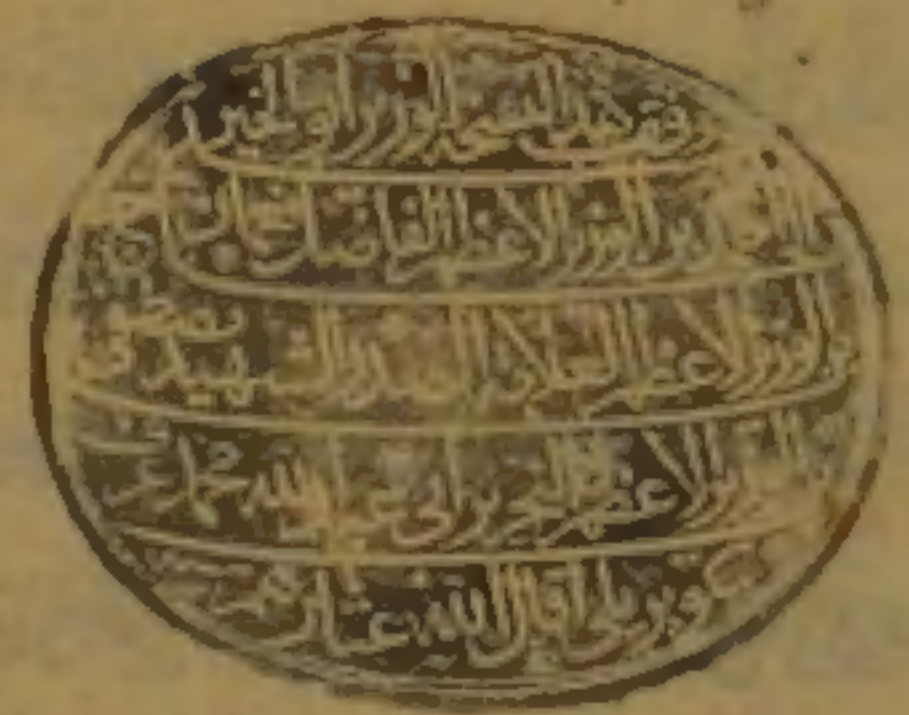 وقف هذه النسخة الوزير ابو الخير
بن الوزير الاعظم الفاضل نعمان
بن الوزير الاعظم العلامة الصدر الشهيد مصطفى
بن الوزير الاعظم النحرير ابى عبد الله محمد عرف
بكوبريلى اقال الله عثارهم